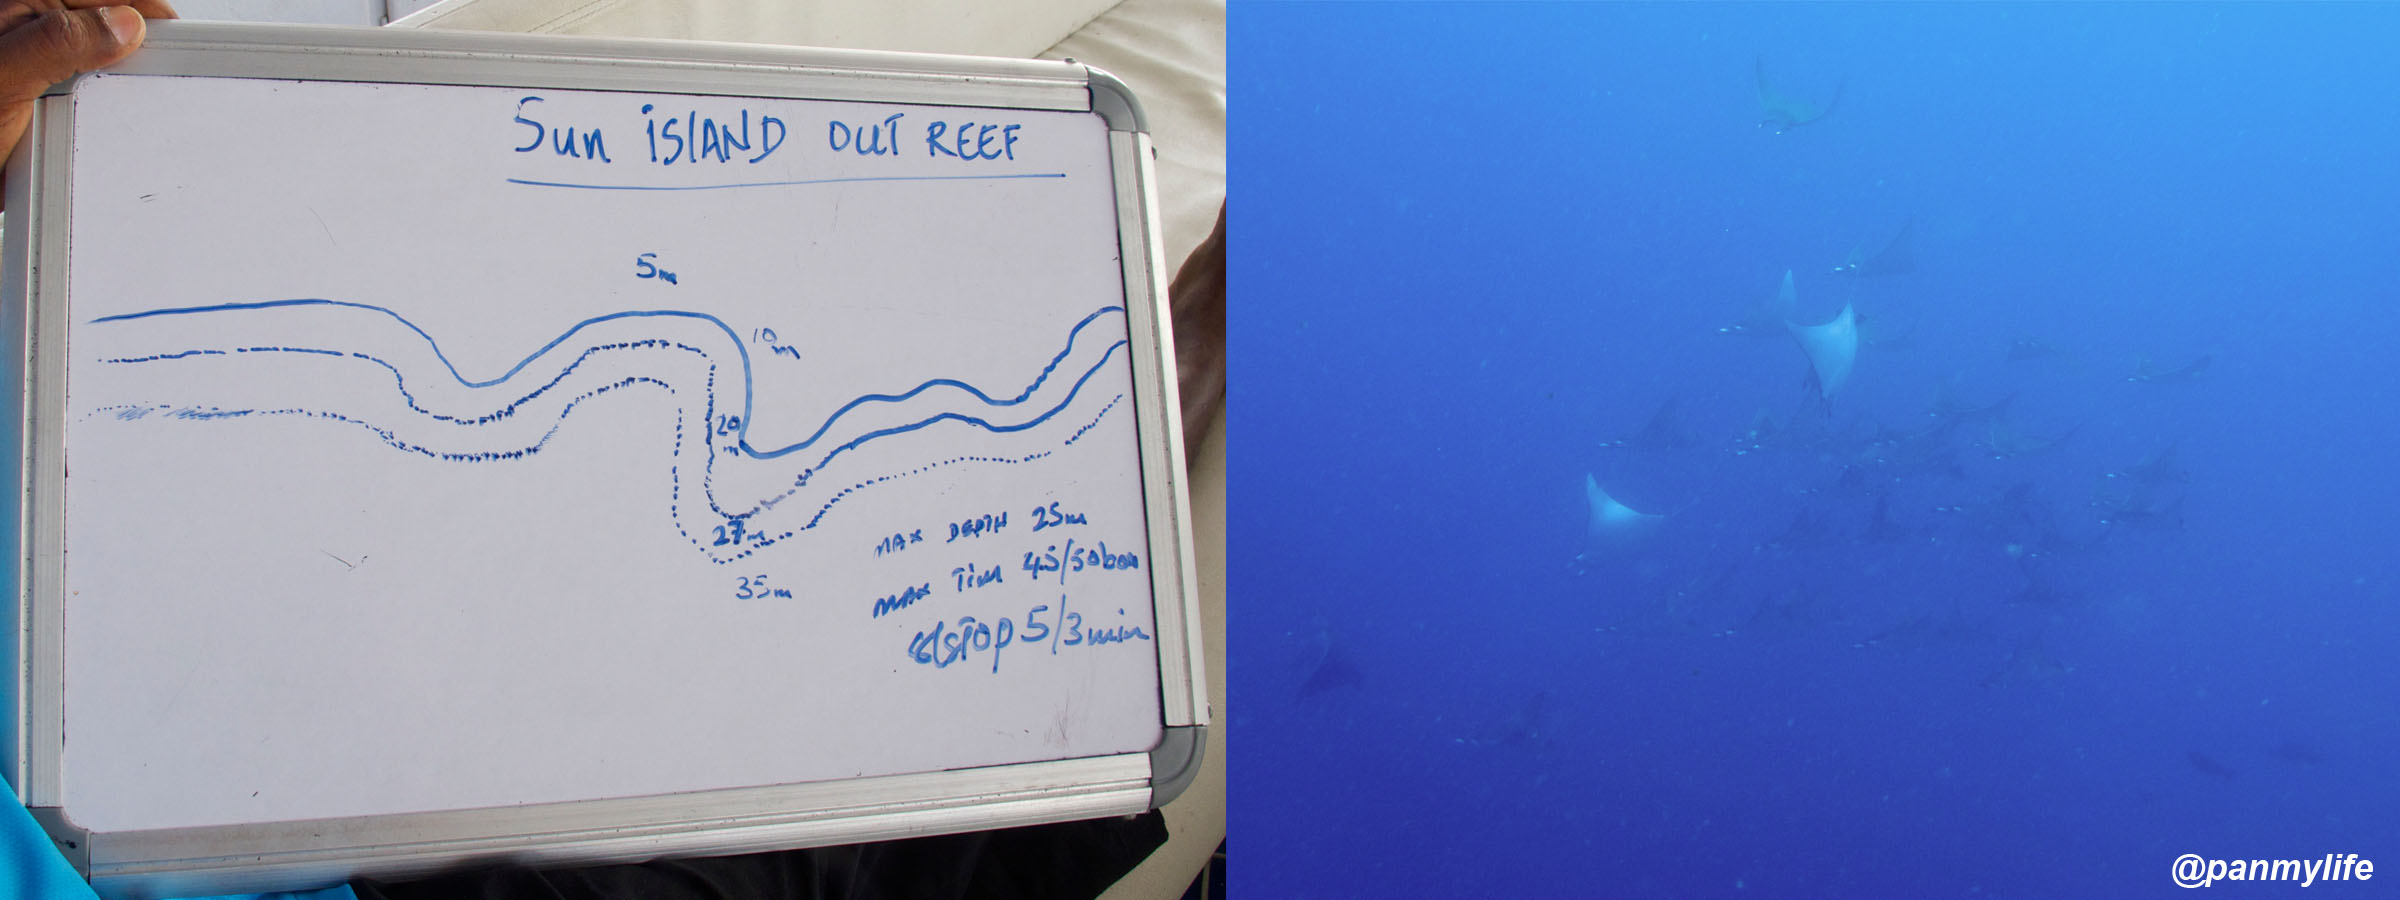 Sun iSLAND OUT REEF
5m
10m
20m
27m
35m
MAX DEPTH 25m
MAX TiM 45/50bar
s/sTOP 5/3min
@panmylife